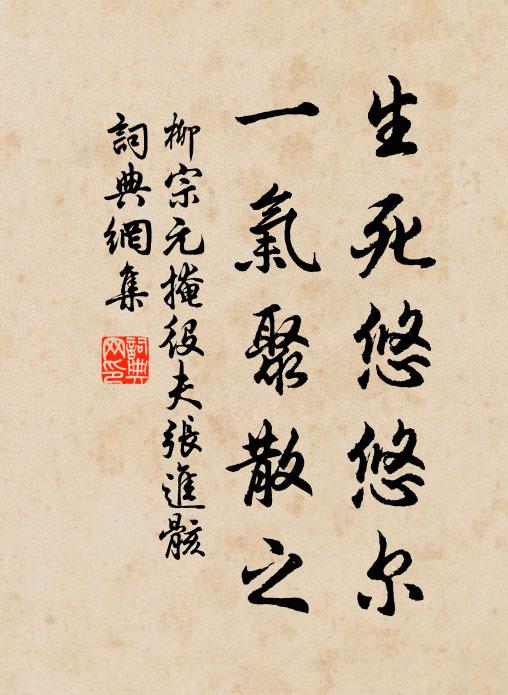 生死悠悠尔
一氣聚散之
柳宗元掩役夫張進骸
詞典網集
詞典网印